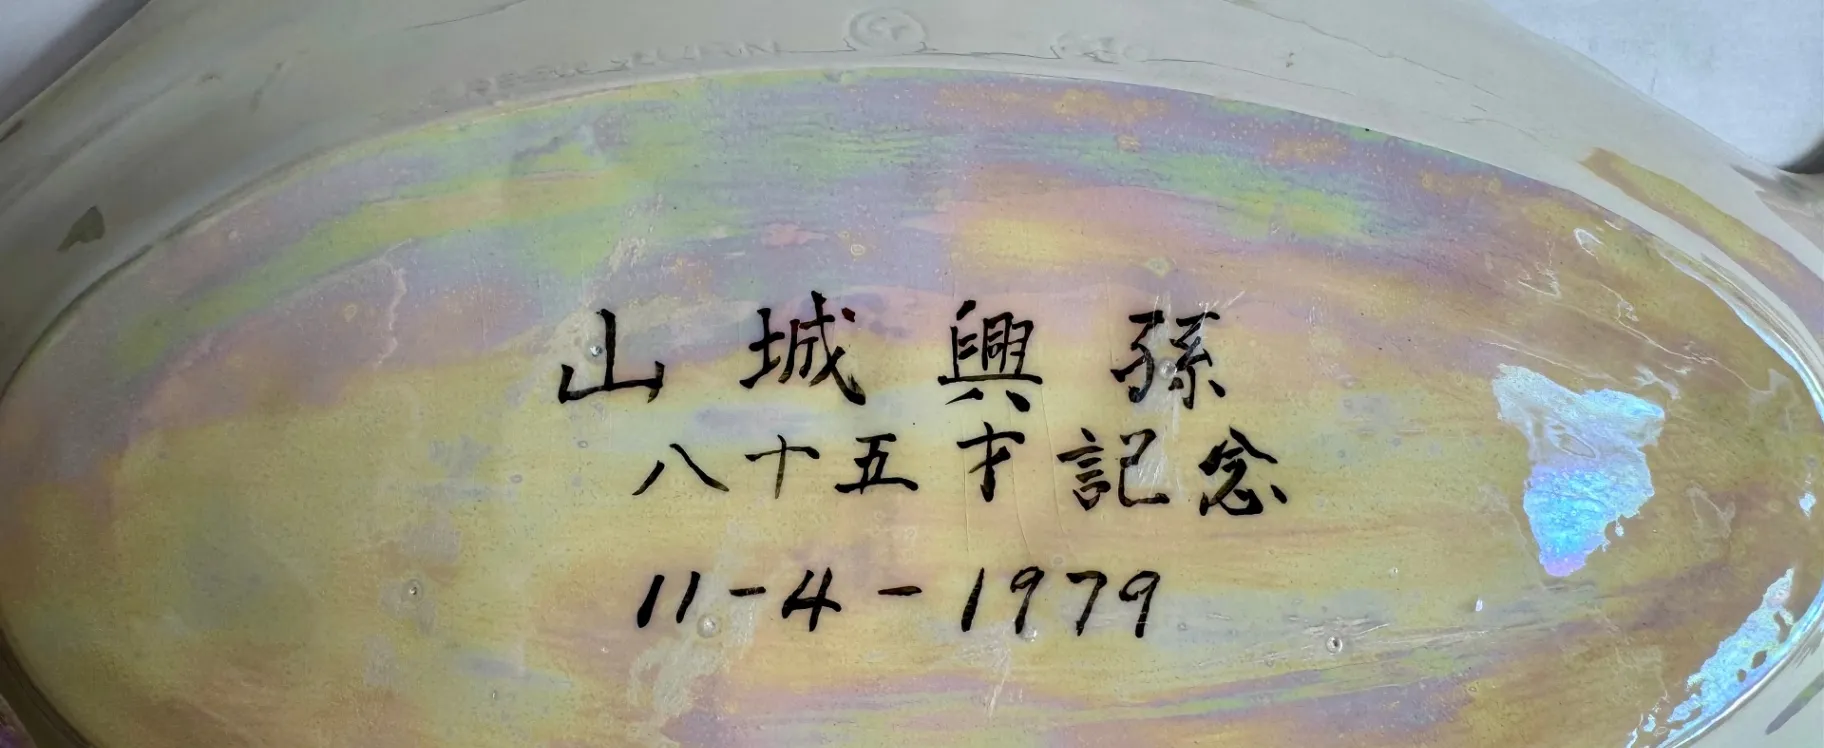 山城興孫
八十五才記念
11-4-1979